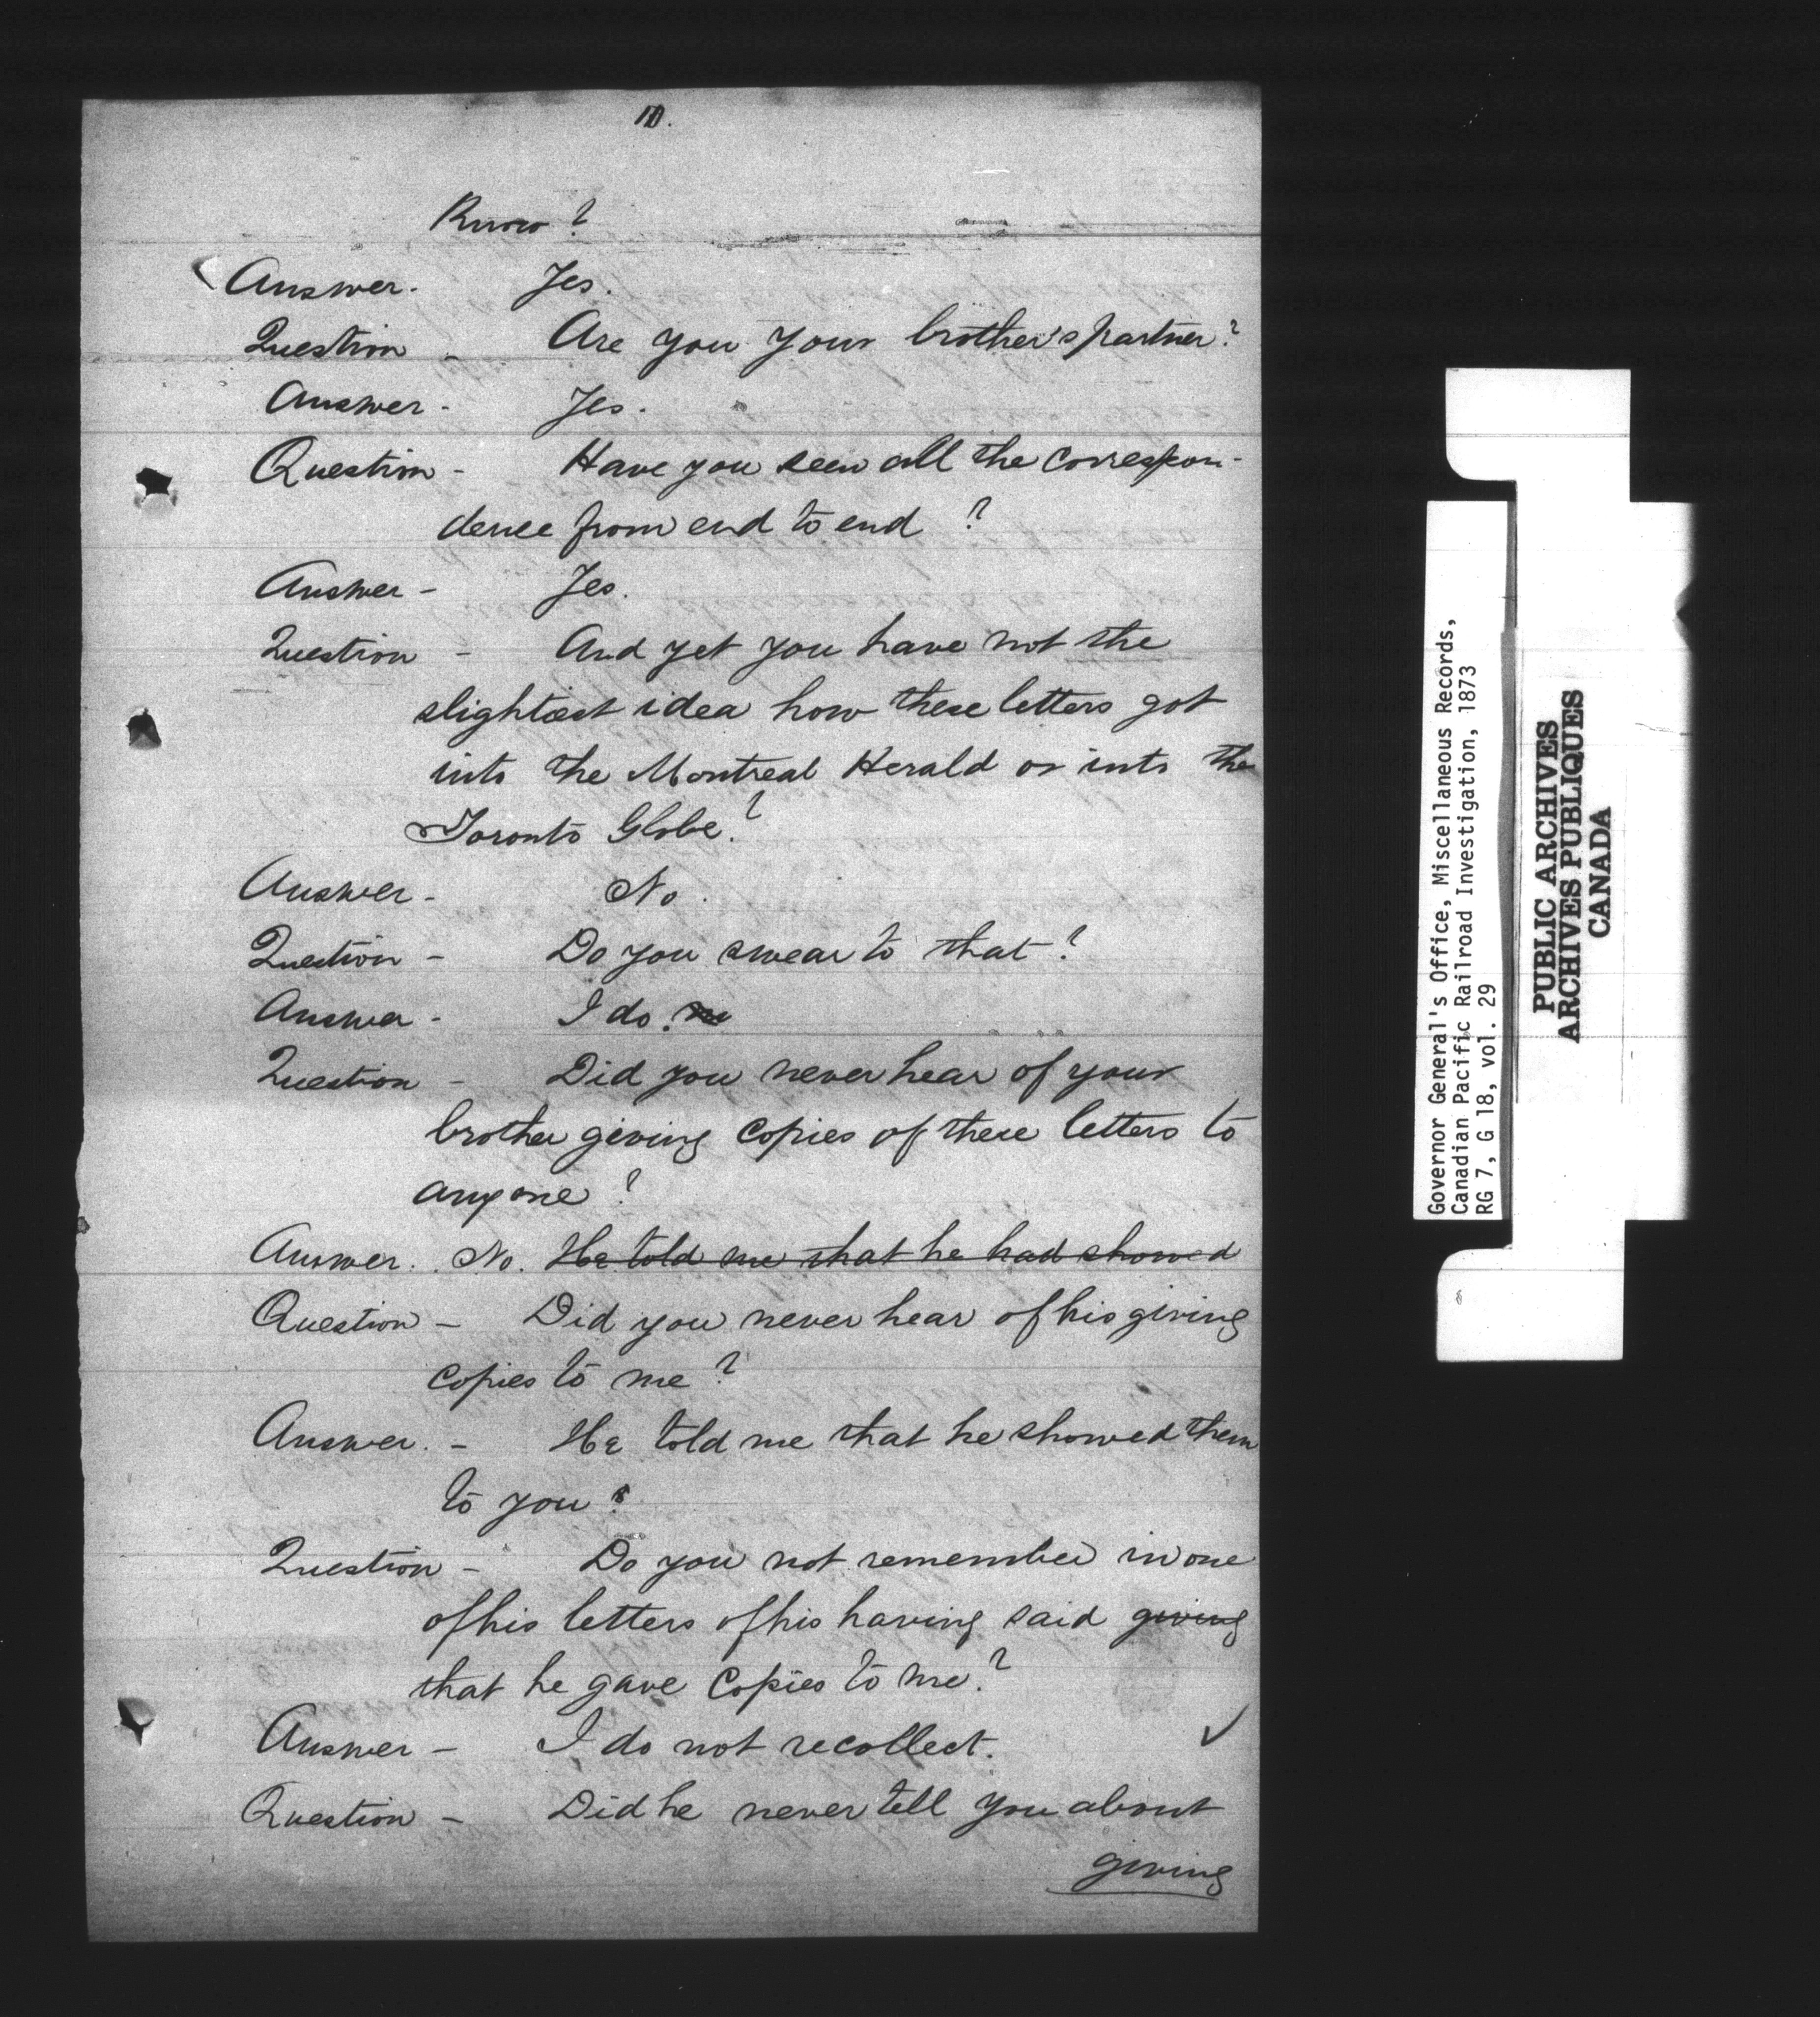 10.
Know?
Answer. Yes.
Question - Are you your brother's partner?
Answer - Yes.
Question - Have you seen all the correspon-
dence from end to end?
Answer - Yes.
Question - And yet you have not the
slightest idea how these letters got
into the Montreal Herald or into the
Toronto Globe?
Answer - No.
Question - Do you swear to that?
Answer - I do.
Question - Did you never hear of your
brother giving copies of these letters to
anyone?
Answer. No. He told me that he had showed
Question - Did you never hear of his giving
copies to me?
Answer. - He told me that he showed them
to you?
Question - Do you not remember in one
of his letters of his having said giving
that he gave copies to me?
Answer - I do not recollect. ✓
Question - Did he never tell you about
giving
Governor General's Office, Miscellaneous Records,
Canadian Pacific Railroad Investigation, 1873
RG 7, G 18, vol. 29
PUBLIC ARCHIVES
ARCHIVES PUBLIQUES
CANADA